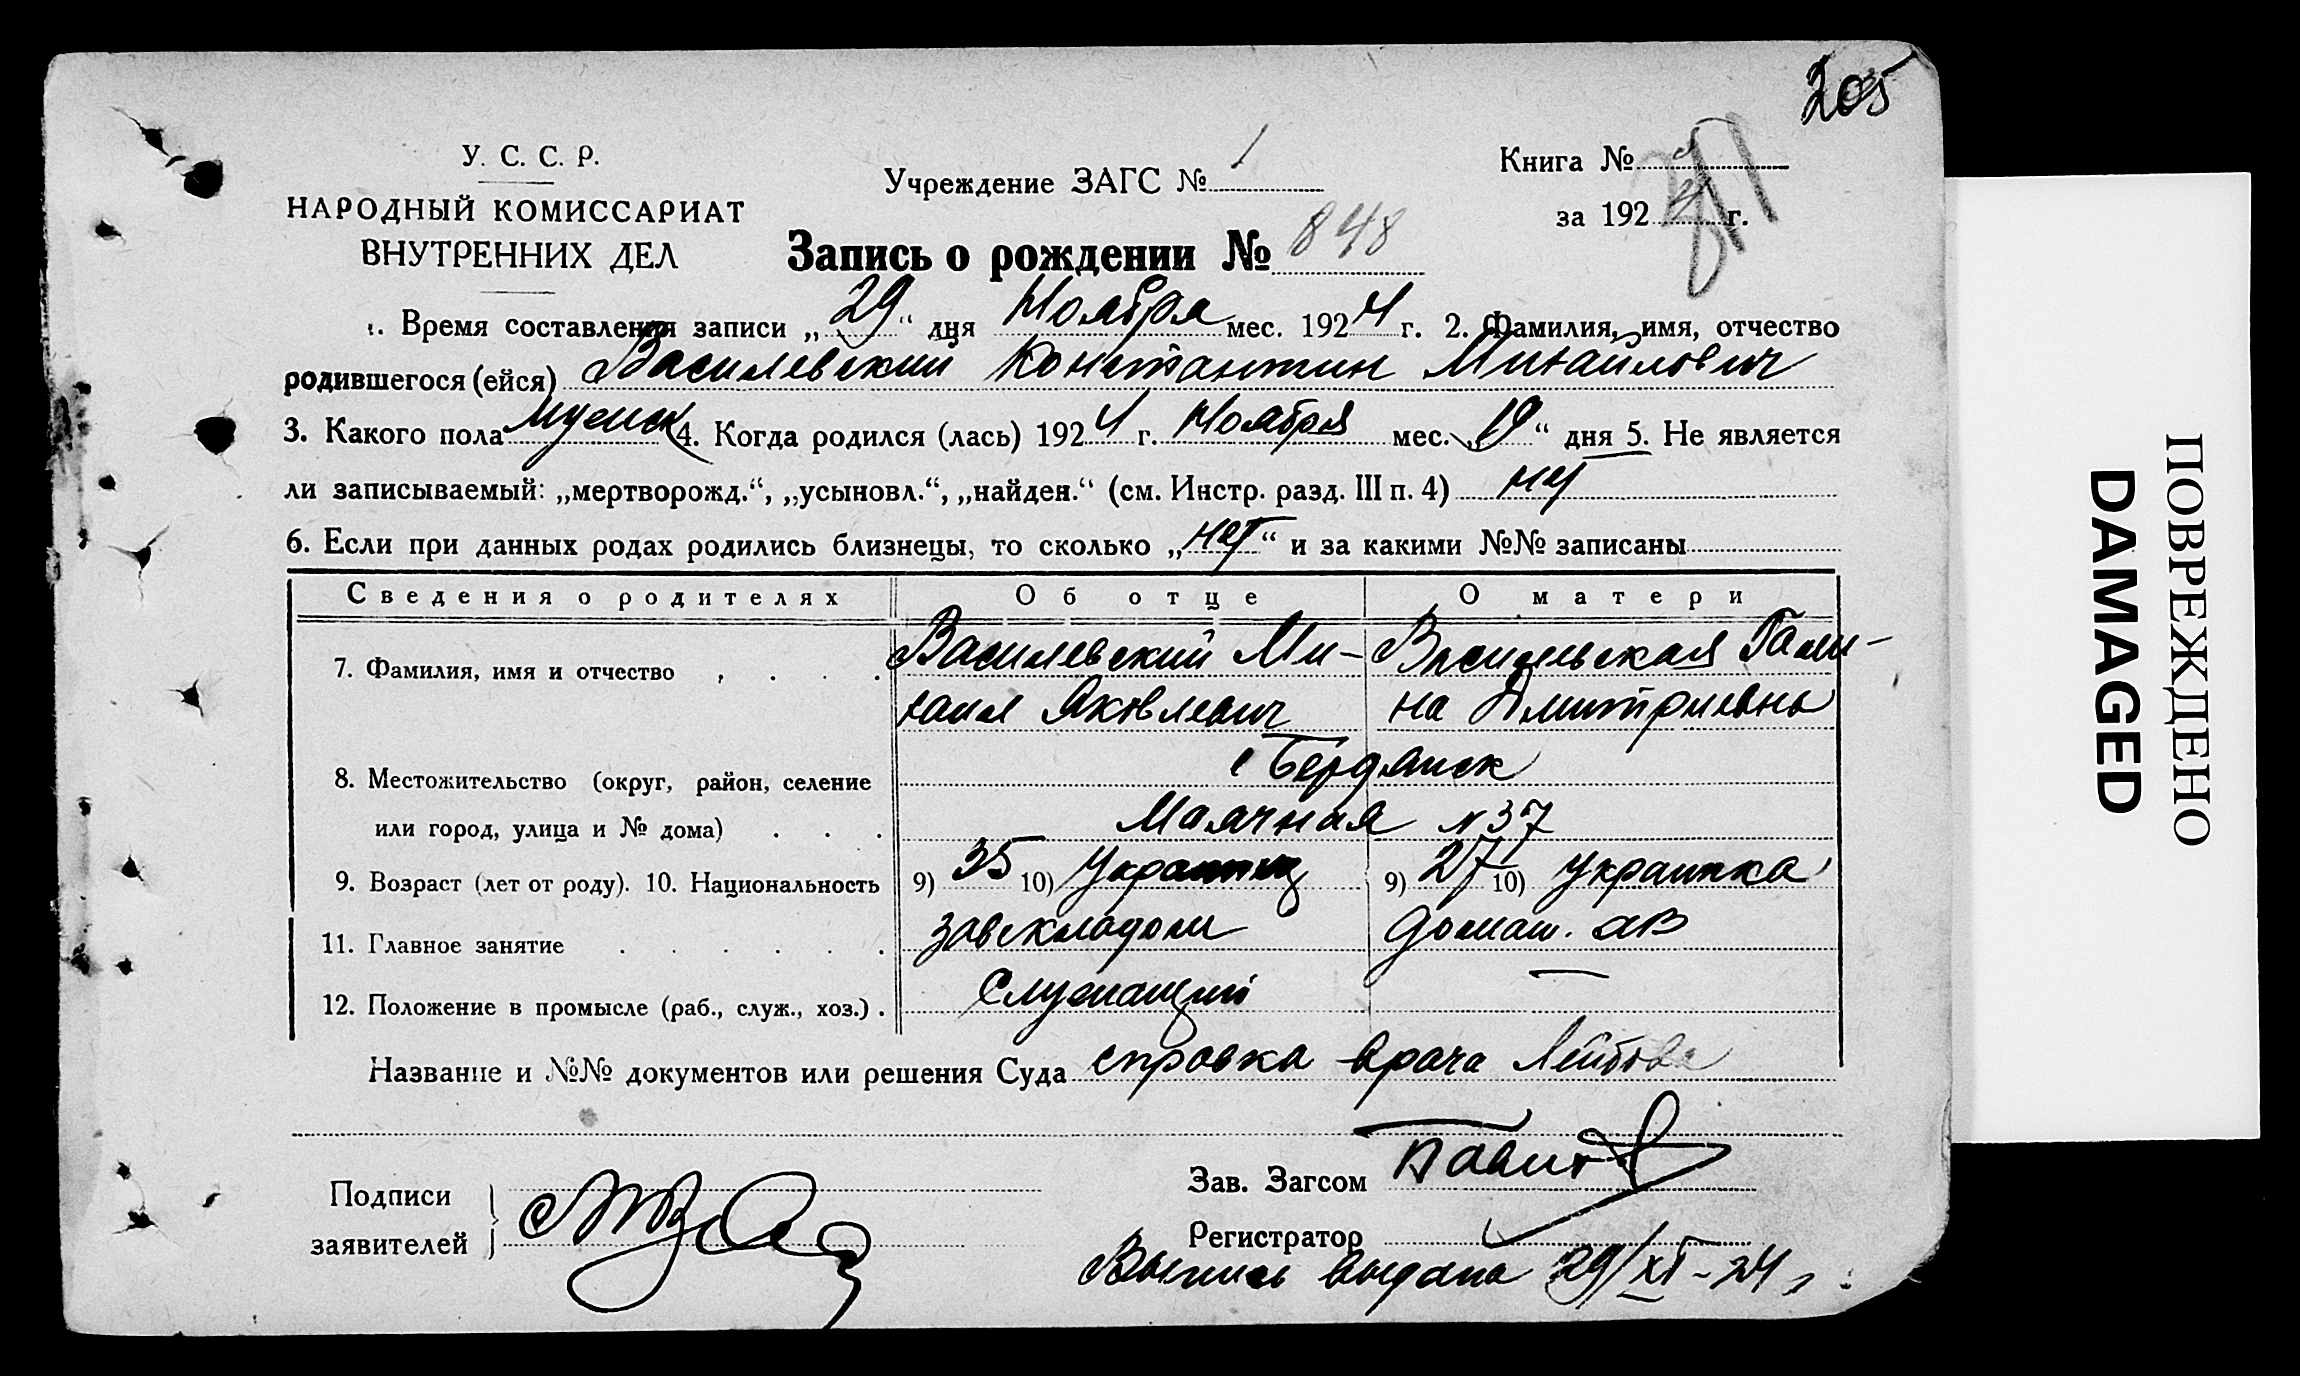 205
У. С. С. Р.
НАРОДНЫЙ КОМИССАРИАТ
ВНУТРЕННИХ ДЕЛ
Учреждение ЗАГС № 1
Книга №
за 1924 г.
Запись о рождении № 848
1. Время составления записи „29“ дня Ноября мес. 1924 г. 2. Фамилия, имя, отчество
родившегося (ейся) Василевский Константин Михайлович
3. Какого пола мужск 4. Когда родился (лась) 1924 г. Ноября мес. „19“ дня 5. Не является
ли записываемый: „мертворожд.“, „усыновл.“, „найден.“ (см. Инстр. разд. III п. 4) нет
6. Если при данных родах родились близнецы, то сколько „нет“ и за какими №№ записаны
Сведения о родителях Об отце О матери
7. Фамилия, имя и отчество Василевский Ми- Василевская Гали-
хаил Яковлевич на Дмитриевна
8. Местожительство (округ, район, селение г Бердянск
или город, улица и № дома) Маячная № 37
9. Возраст (лет от роду). 10. Национальность 9) 35 10) Украинец 9) 27 10) Украинка
11. Главное занятие завскладом домаш.
12. Положение в промысле (раб., служ., хоз.) Служащий —
Название и №№ документов или решения Суда справка врача Лейбова
Подписи
заявителей
Зав. Загсом
Регистратор
Выпись выдана 29/XI-24 г.
ПОВРЕЖДЕНО
DAMAGED